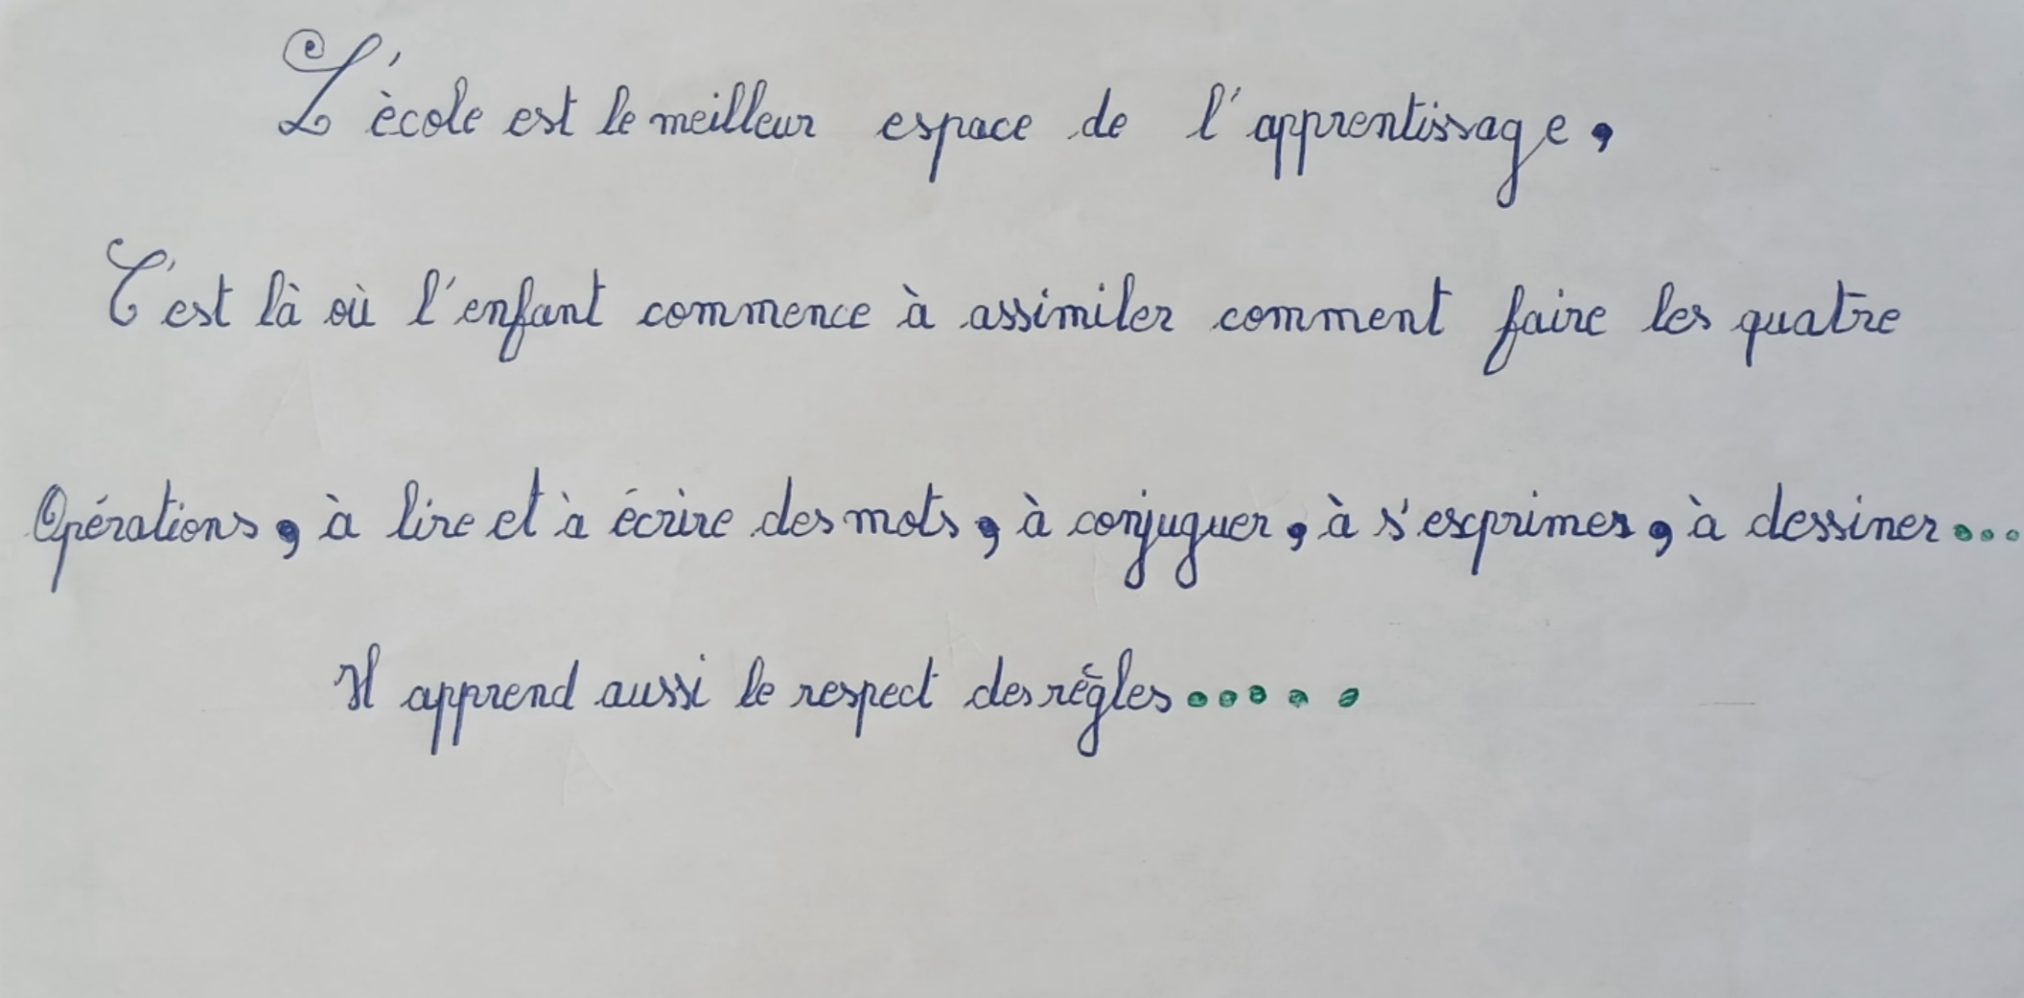 L'ècole est le meilleur espace de l'apprentissage,
C'est là où l'enfant commence à assimiler comment faire les quatre
Opérations, à lire et à écrire des mots, à conjuguer, à s'exprimer, à dessiner...
Il apprend aussi le respect des règles.....